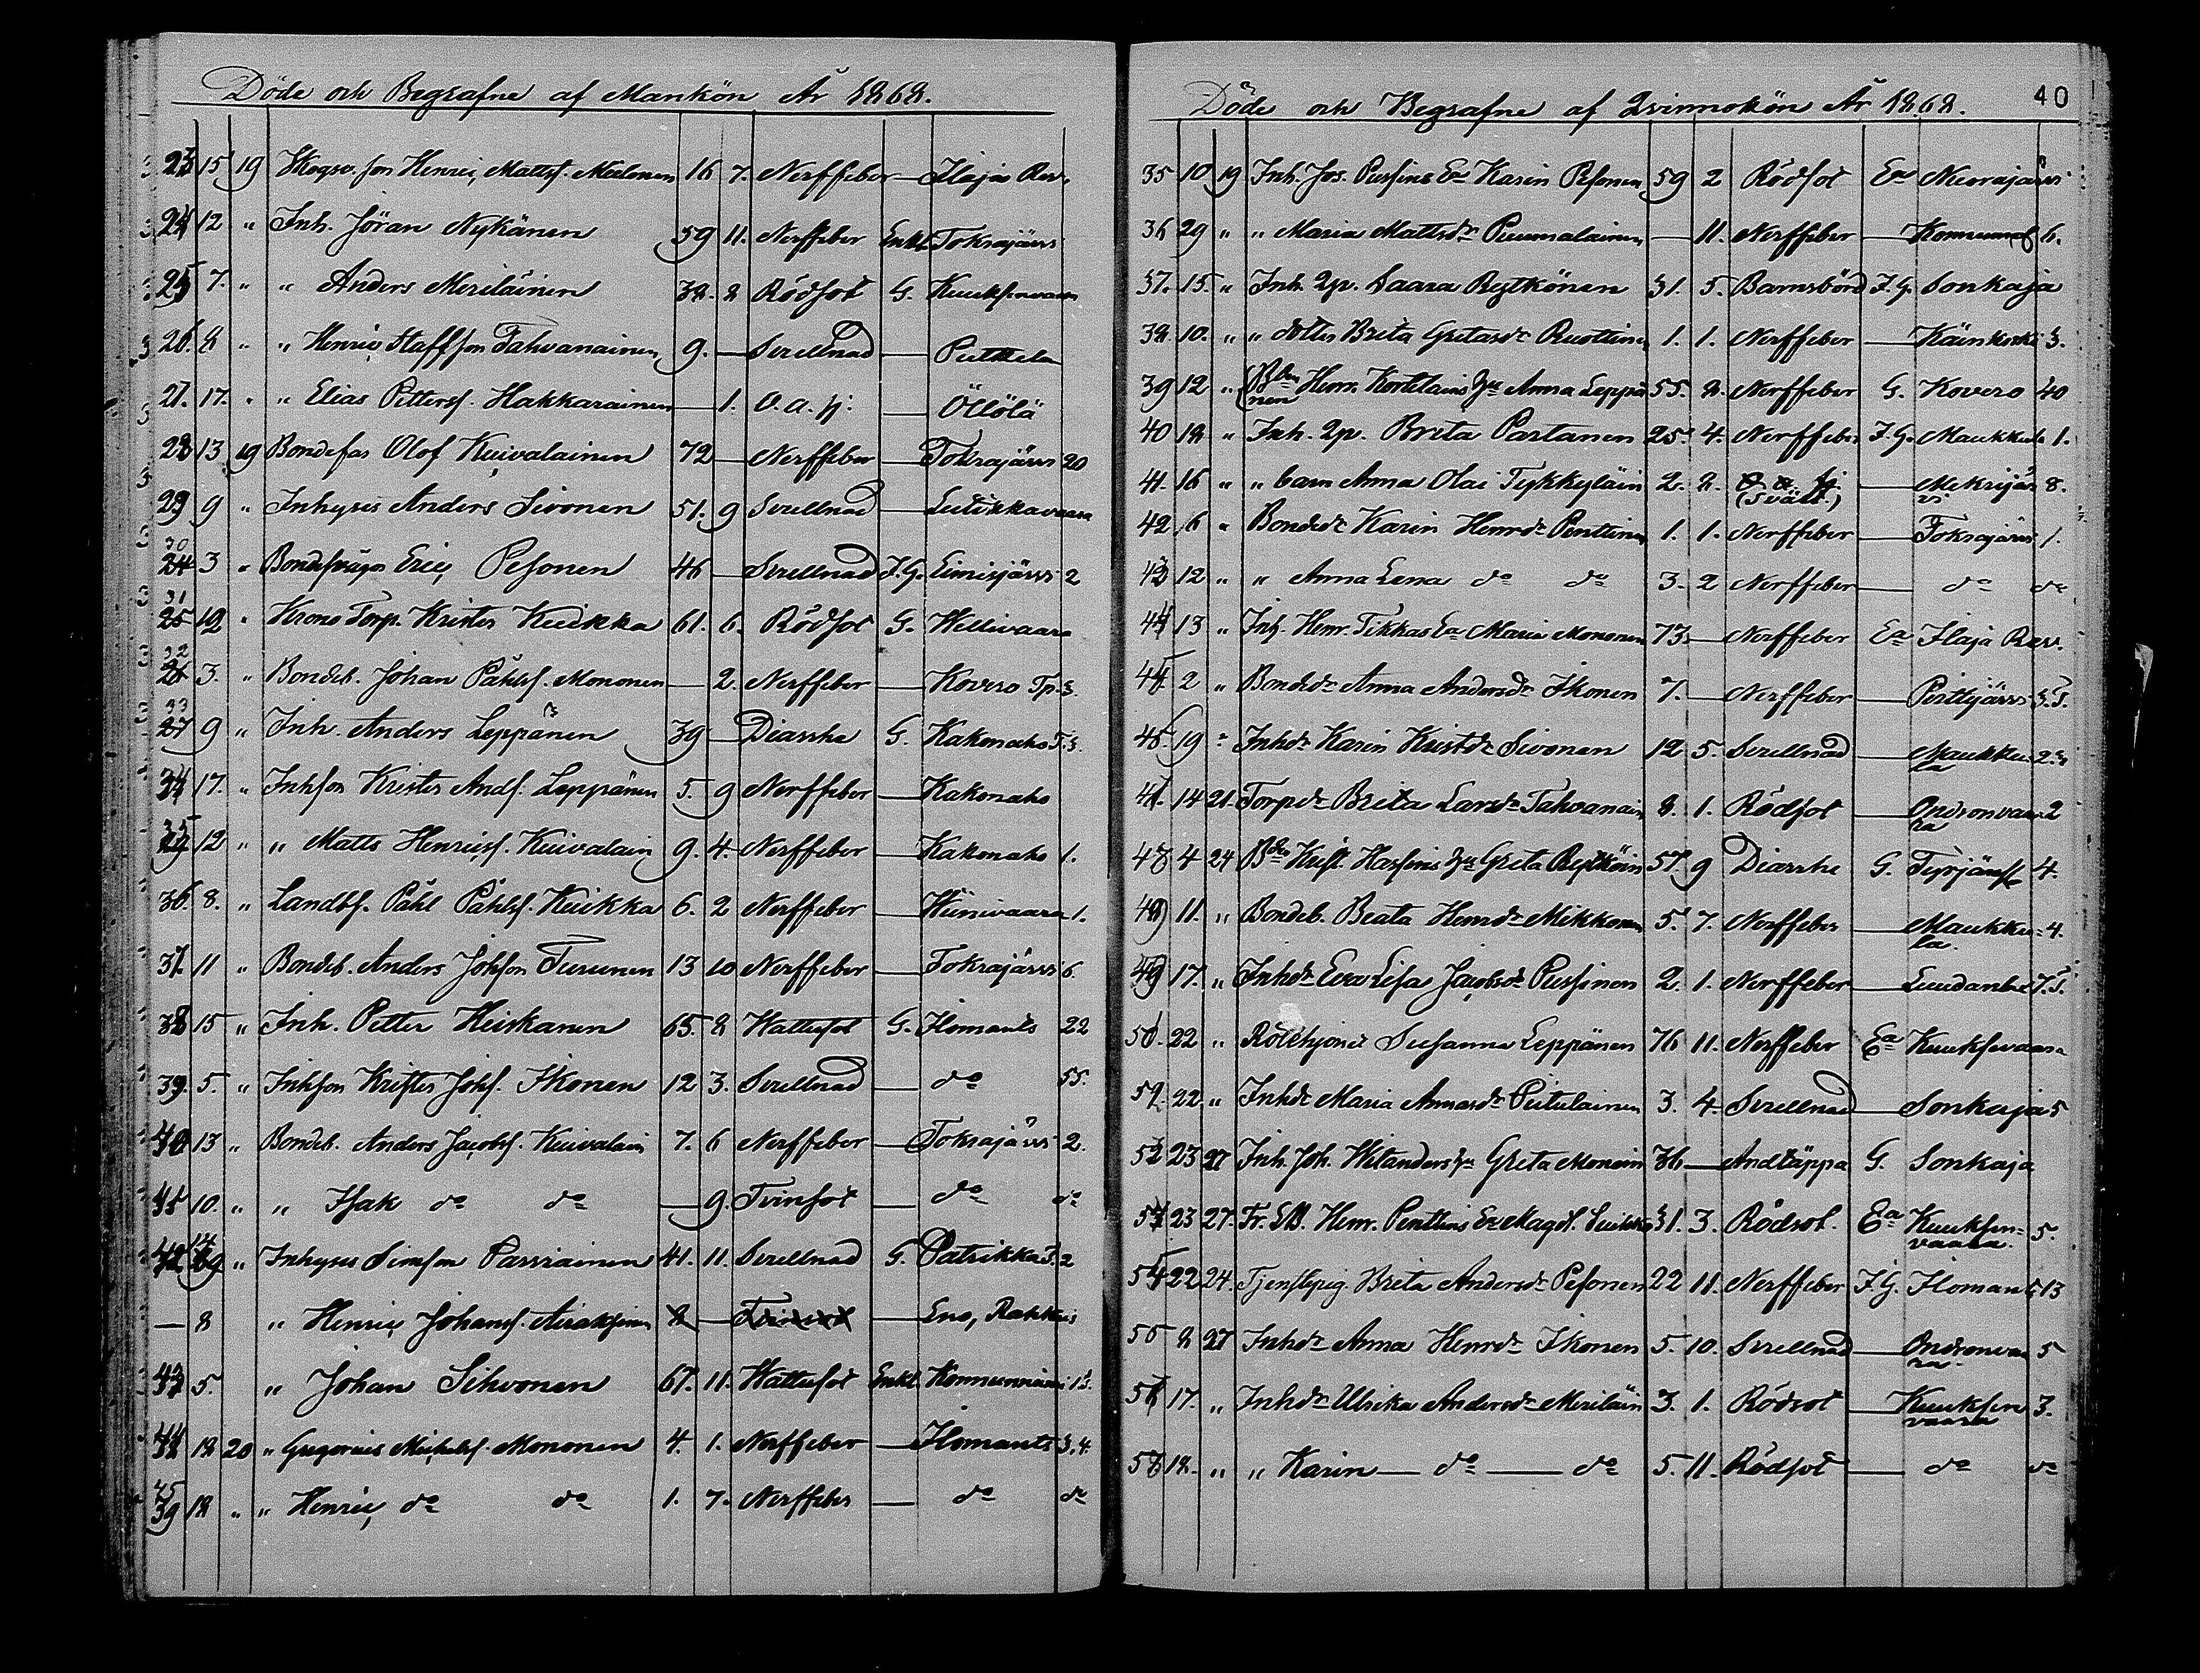 Döde och Begrafne af Mankön År 1868.
23 15 19 Skogsv. son Henric Mattsf. Meelonen 16 7. Nerffeber — Ilaja Rev.
24 12 " Inh. Jöran Nykänen 59 11. Nerffeber Enkl. Tokrajärvi
25 7. " " Anders Meriläinen 38. 8 Rödsot G. Kuuksenvaara
26. 8 " " Henric Staffson Tahvanainen 9. — Svullnad — Putkela
27. 17. " " Elias Pettersf. Hakkarainen — 1. O. a. sj. — Öllölä
28 13 19 Bondefar Olof Kuivalainen 72 — Nerffeber — Tokrajärvi 20
29 9 " Inhyses Anders Sivonen 51. 9 Svullnad — Leitikkavaara
30 3 " Bondesvågr Eric Pesonen 46 — Svullnad F.G. Liimijärvi 2
31 19 " Krono Torp. Krister Kuikka 61. 6. Rödsot G. Hullivaara
32 3. " Bondeb. Johan Påhlsf. Mononen — 2. Nerffeber — Kovero Tp. 3.
33 9 " Inh. Anders Leppänen 39 — Diarrhe G. Kakonaho T. 3.
34 17. " Inhson Krister Andf. Leppänen 5. 9 Nerffeber — Kakonaho
35 12 " " Matts Henricsf. Kuivalain 9. 4. Nerffeber — Kakonaho 1.
36. 8. " Landbf. Påhl Påhlsf. Kuikka 6. 2 Nerffeber — Huinivaara 1.
37. 11 " Bondeb. Anders Johson Turunen 13 10 Nerffeber — Tokrajärvi 6.
38 15 " Inh. Petter Heiskanen 65. 8 Wattusot G. Ilomants 22
39. 5. " Inhson Krister Johs. Ikonen 12 3. Svullnad — do 55.
40 13 " Bondeb. Anders Jacobsf. Kuivalain 7. 6 Nerffeber — Tokrajärvi 2.
41 10. " " Isak do do — 9. Tvinsot — do do
42 14 " Inhyses Simson Parviainen 41. 11. Svullnad G. Patrikka T. 2
— 8 " Henric Johansf. Airaksinen 8 — Tvinsot — Eno, Rahkis
43 5. " Johan Sihvonen 67. 11. Wattusot Enkl. Konnunniemi 13.
44 18 20 " Gregorius Michelsf. Mononen 4. 1. Nerffeber — Ilomants 3.4.
45 18 " " Henric do do 1. 7. Nerffeber — do do
Döde och Begrafne af Qvinnokön År 1868. 40
35 10 19 Inh. Jos. Pussins Ea Karin Pesonen 59 2 Rödsot Ea Nuorajärvi
36 29 " " Maria Mattsdr Puumalainen — 11. Nerffeber — Konnunniemi 6.
37. 15. " Inh. Qp. Saara Rytkönen 31. 5. Barnsbörd F.G. Sonkaja
38. 10. " " dotter Brita Gretasdr Ruottinen 1. 1. Nerffeber — Käinkoski 3.
39 12 " Bden Henr. Kortelains Hu Anna Leppä 55. 8. Nerffeber G. Kovero 40
nen
40 18 " Inh. Qp. Brita Partanen 25. 4. Nerffeber F.G. Maukkula 1.
41. 16 " " barn Anna Olai Tykkyläin 2. 2. O. a. sj. — Mekrijär 8.
(Svält.) vi
42 6 " Bondedr Karin Henrdr Penttinen 1. 1. Nerffeber — Tokrajärvi 1.
43 12 " " Anna Lena do do 3. 2 Nerffeber — do do
44 13 " Inh. Henr. Tikkas Ea Maria Mononen 73. — Nerffeber Ea Ilaja Rev.
45 2 " Bondedr Anna Andersdr Ikonen 7. — Nerffeber — Pertijärvi 3.T.
46 19 " Inhdr Karin Kristdr Sivonen 12 5. Svullnad — Maukku 2.
la
47. 14 21. Torpdr Brita Larsdr Tahvanain 8. 1. Rödsot — Ondronvaa 2
ra
48 4 24 Bden Krist. Hassins Hu Greta Rytköin 57. 9 Diarrhe G. Tyrjänse 4.
49 11. " Bondeb. Beata Henrdr Mikkonen 5. 7. Nerffeber — Maukku 4.
la.
49 17. " Inhdr Eva Lisa Jacobsdr Pussinen 2. 1. Nerffeber — Luudanlax 7.T.
51. 22 " Rotehjonet Susanna Leppänen 76 11. Nerffeber Ea Kuuksenvaara
52. 22. " Inhdr Maria Annasdr Piitulainen 3. 4. Svullnad — Sonkaja 5
53 23 27 Inh. Joh. Wilanders Hu Greta Monoin 36 — Andtäppa G. Sonkaja
54 23 27. Fr. Henr. Penttins Ea Magd. 31. 3. Rödsot. Ea Kuuksen- 5.
vaara.
55 22 24. Tjenstepig. Brita Andersdr Pesonen 22 11. Nerffeber F.G. Ilomants 13
56 8 27 Inhdr Anna Henrdr Ikonen 5. 10. Svullnad — Ondronvaa 5
ra.
57 17. " Inhdr Ulrika Andersdr Meriläin 3. 1. Rödsot — Kuuksen 3.
vaara
58 18. " " Karin — do — do 5. 11. Rödsot — do do